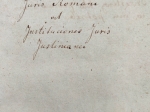 Juris Romani
ad
Institutiones Juris
Justiniani